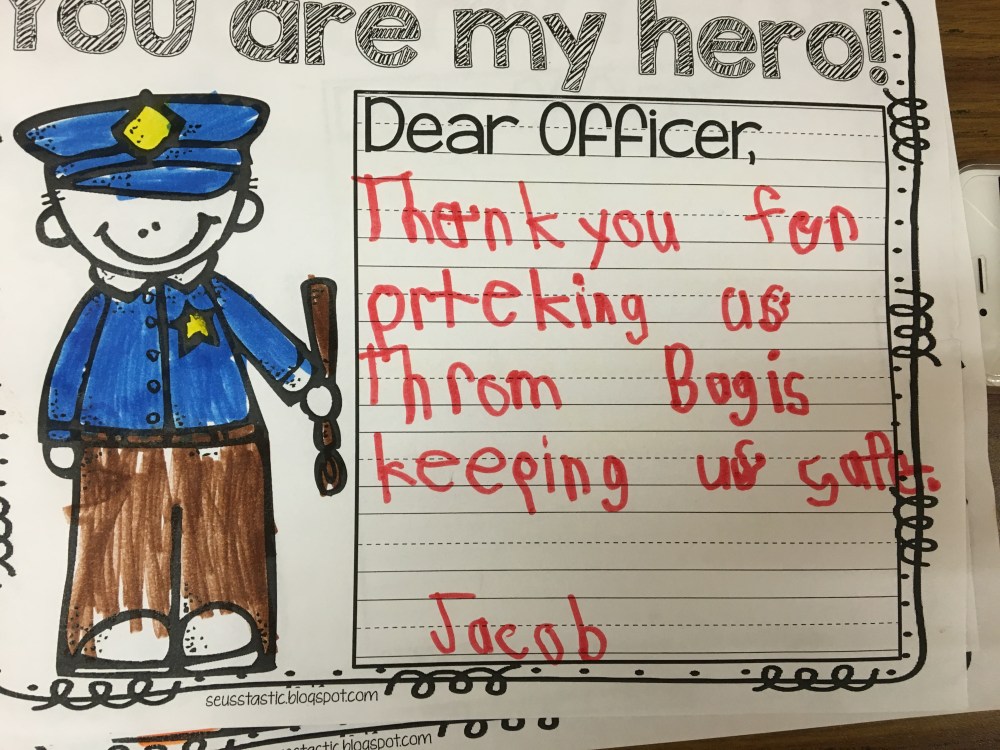 You are my hero!
Dear Officer,
Thank you for
prteking us
Throm Bogis
keeping us safe.
Jacob
seusstastic.blogspot.com
sstastic.blogspot.com